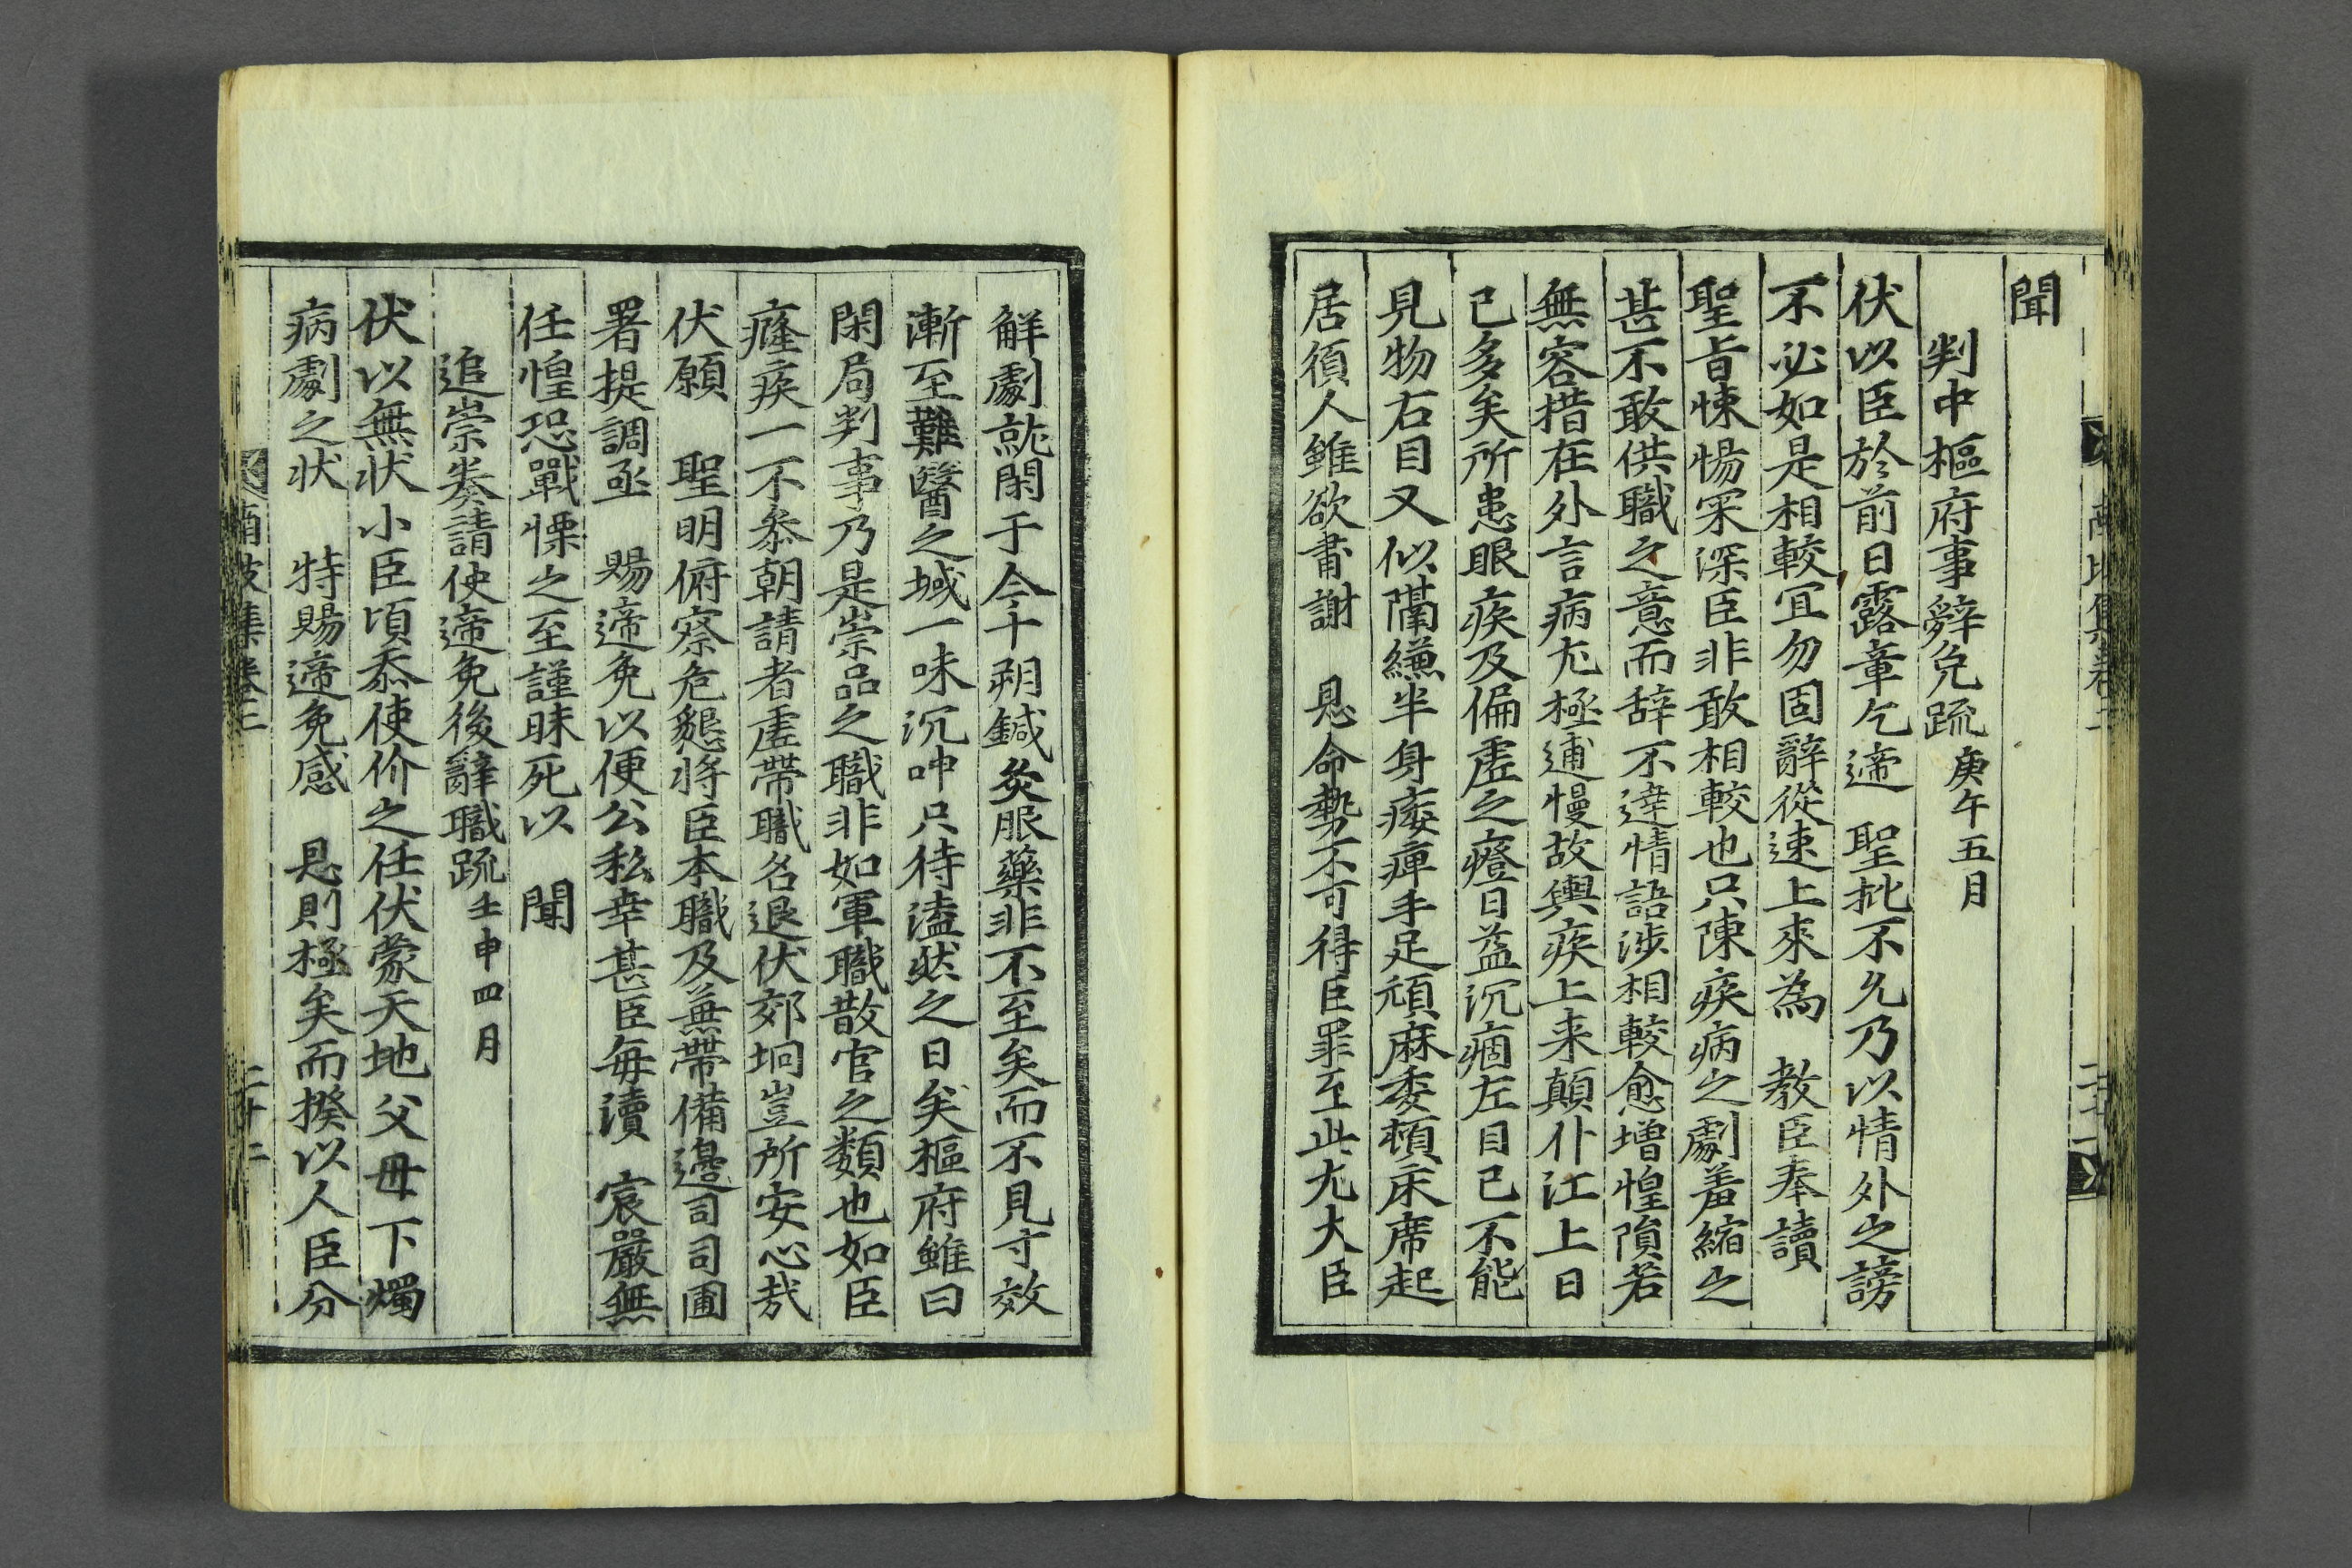 聞
判中樞府事辭免疏 庚午五月
伏以臣於前日露章乞遞 聖批不允乃以情外之謗
不必如是相較冝勿固辭從速上來為 教臣奉讀
聖旨悚惕冞深臣非敢相較也只陳疾病之劇羞縮之
甚不敢供職之意而辞不達情語涉相較愈增惶隕若
無容措在外言病尤極逋慢故輿疾上来顛仆江上日
已多矣所患眼疾及偏虛之證日益沉痼左目已不能
見物右目又似隔縑半身痿痺手足頑麻委頓床席起
居須人雖欲肅謝 恩命勢不可得臣罪至此尤大臣
觧劇就閑于今十朔鍼灸服藥非不至矣而不見寸效
漸至難醫之域一味沉呻只待溘然之日矣樞府雖曰
閑局判事乃是崇品之職非如軍職散官之類也如臣
癃疾一不參朝請者虛帶職名退伏郊坰豈所安心㦲
伏願 聖明俯察危懇將臣本職及兼帶備邊司司圃
署提調亟 賜遞免以便公私幸甚臣每瀆 宸嚴無
任惶恐戰慄之至謹昧死以 聞
追崇奏請使遞免後辭職疏 壬申四月
伏以無狀小臣頃忝使价之任伏蒙天地父母下燭
病劇之狀 特賜遞免感 恩則極矣而揆以人臣分
集卷三 二十二